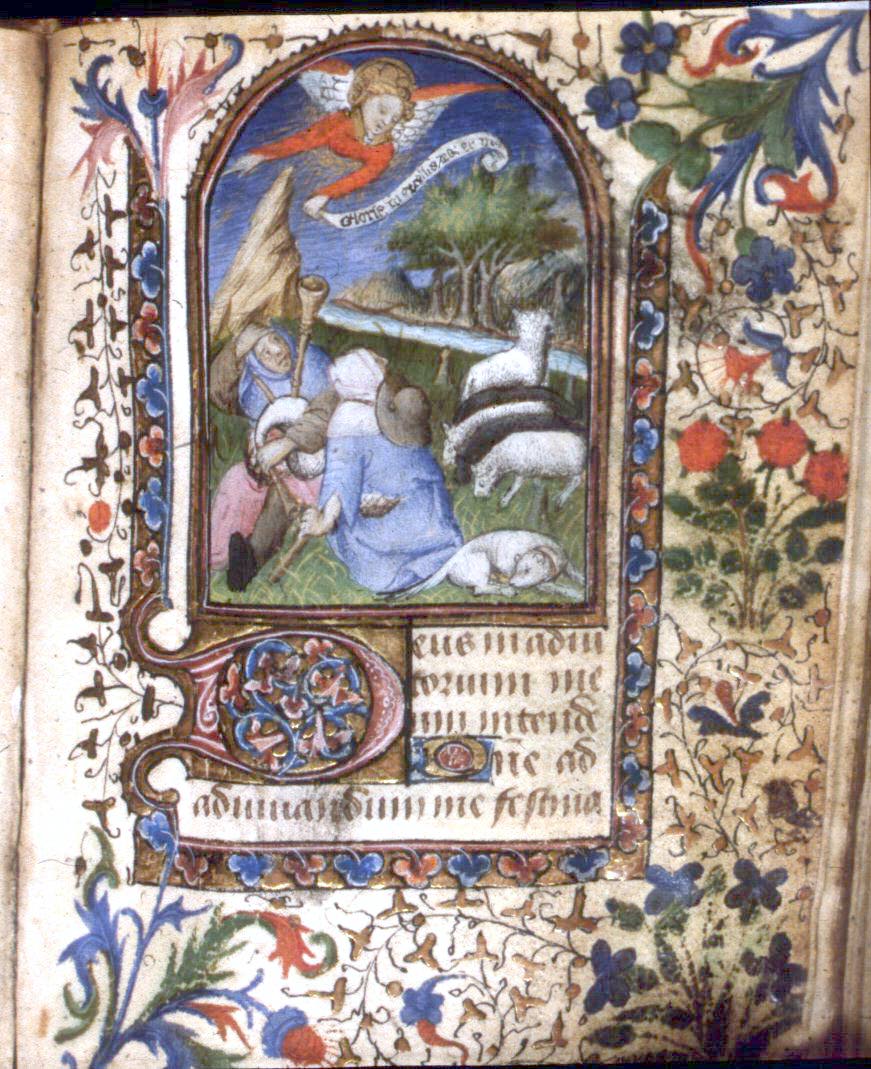 Gloria in excelsis
Deus in adiu
torium me
um intende
Dne ad
adiuuandum me festina